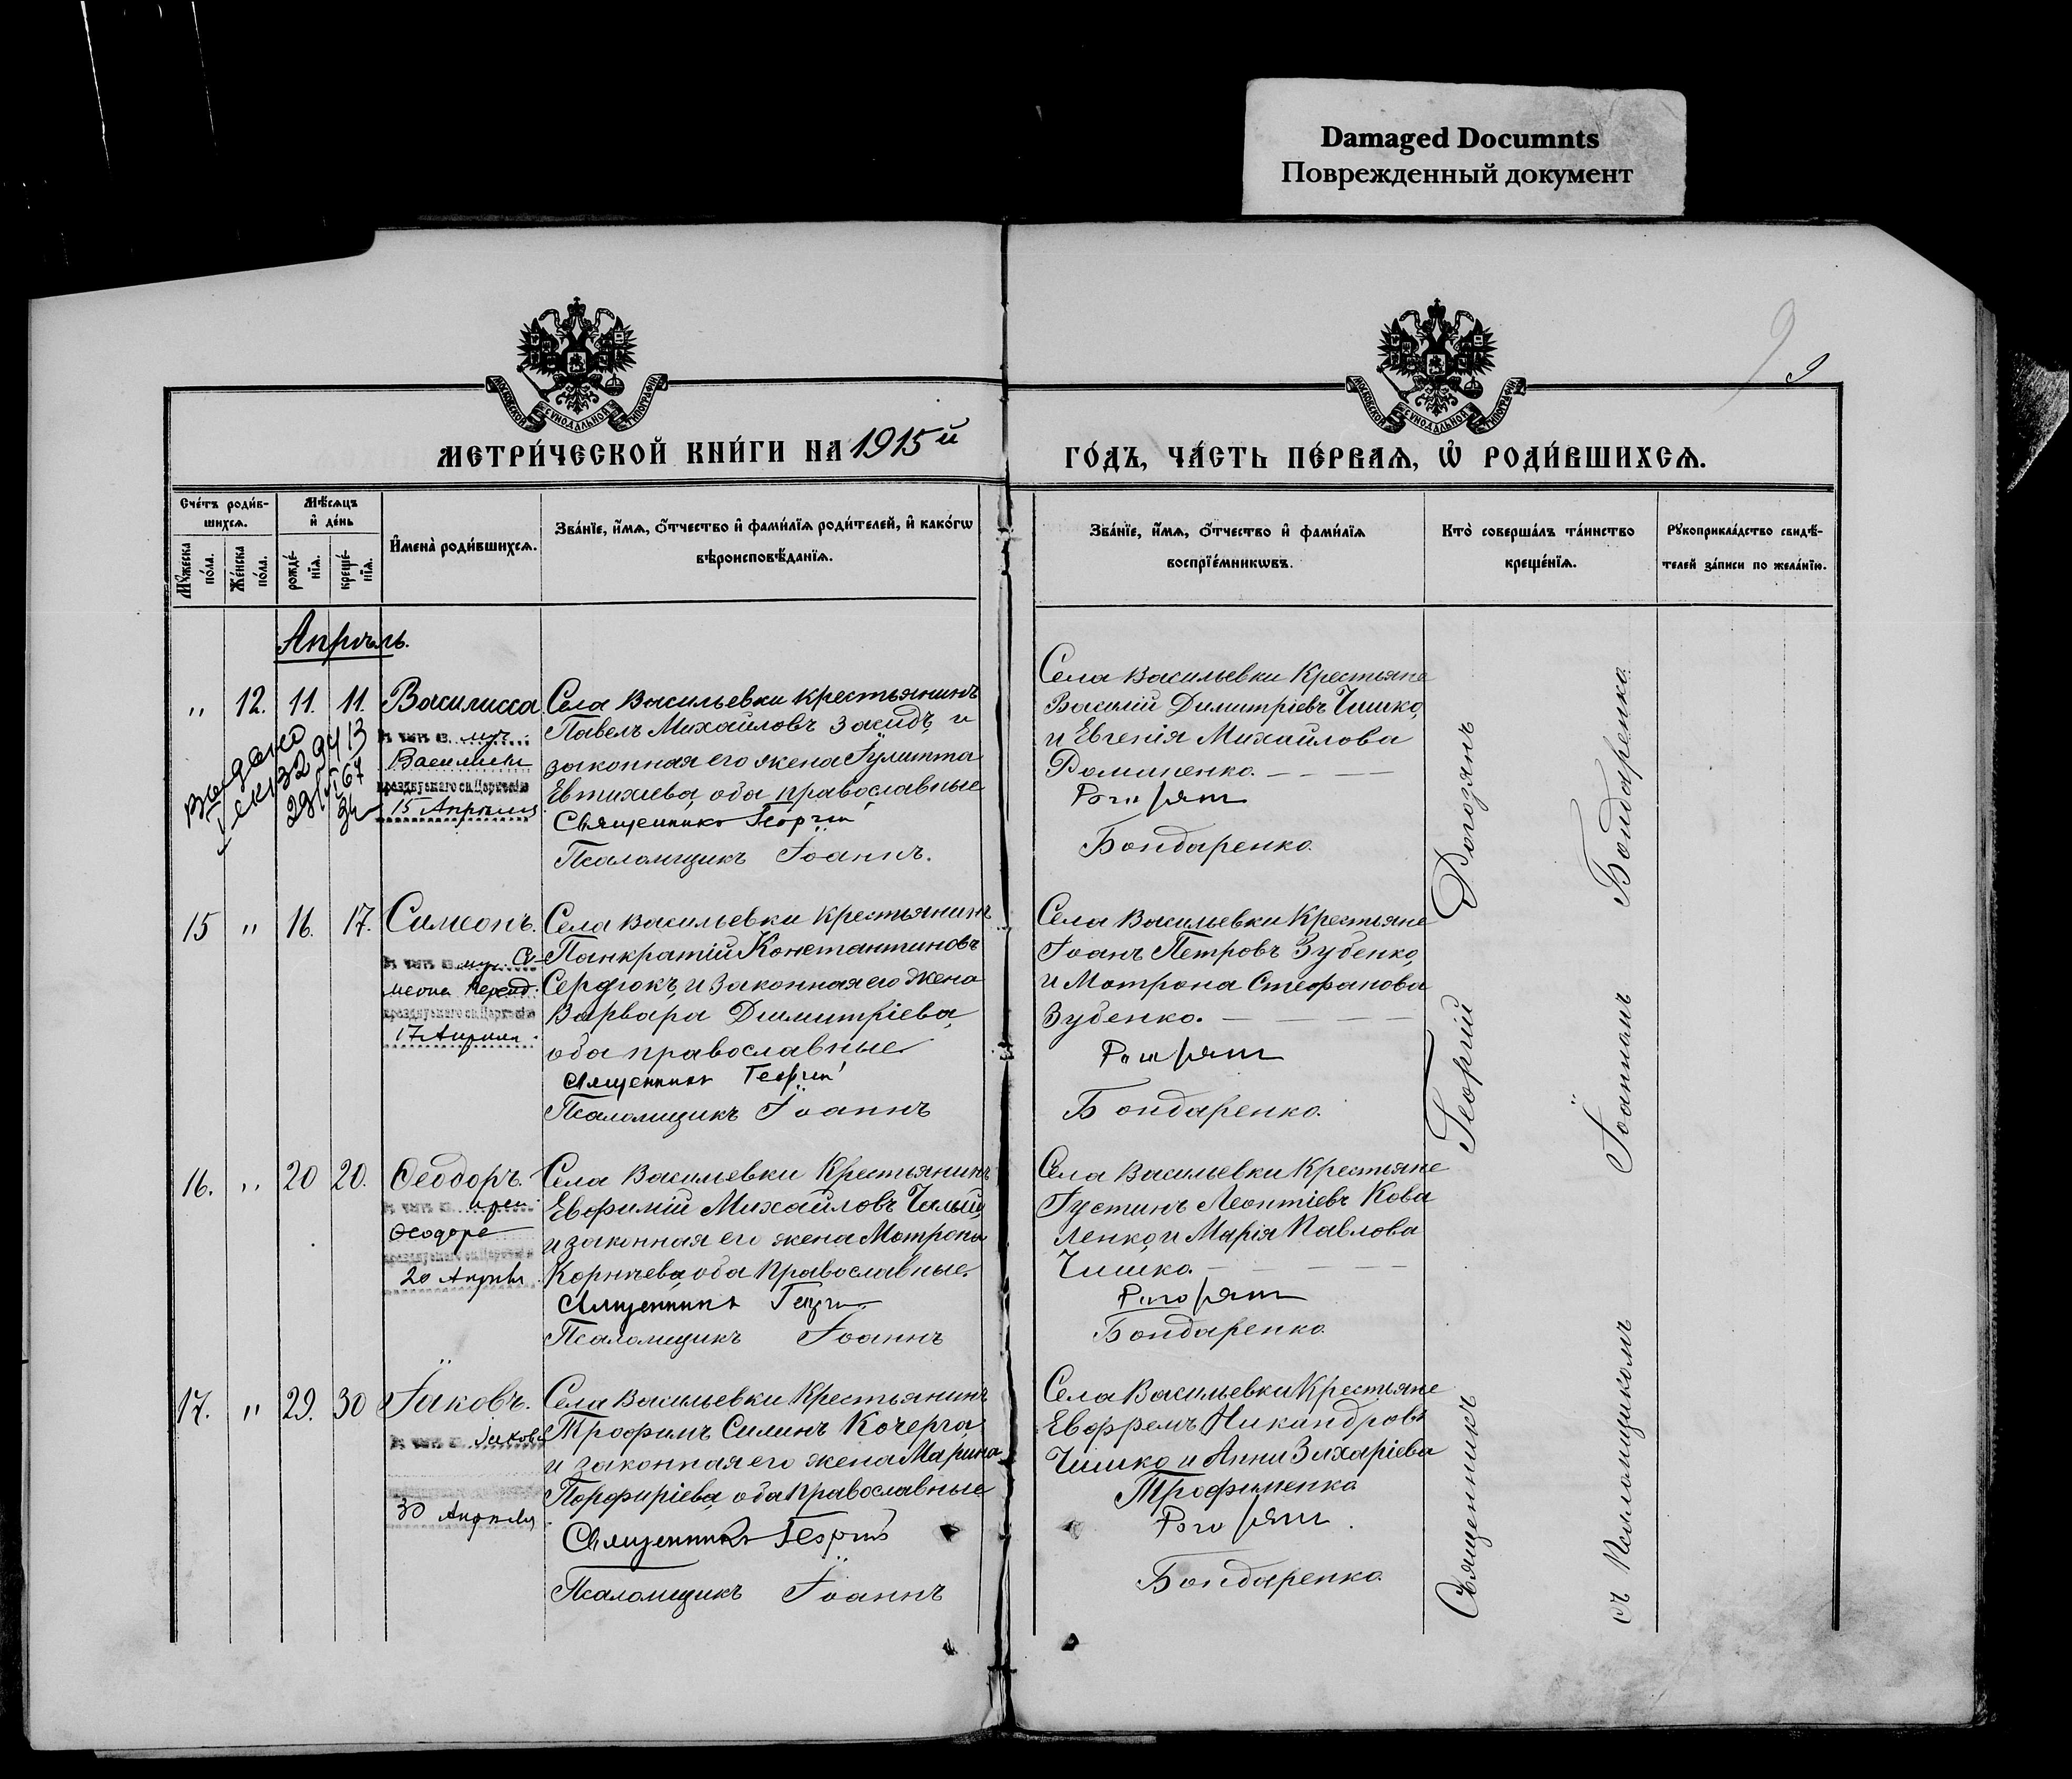 Damaged Documnts
Поврежденный документ
9
9
МЕТРИ́ЧЕСКОЙ КНИ́ГИ НА 1915й
ГО́ДЪ, ЧА́СТЬ ПЕ́РВАѦ, Ѽ РОДИ́ВШИХСѦ.
Сче́тъ роди́в-
шихсѧ.
Мꙋ́жеска
по́ла.
Же́нска
по́ла.
Мѣ́сѧцъ
и҆ де́нь
рожде́-
нїѧ.
креще́-
нїѧ.
И҆мена̀ роди́вшихсѧ.
Зва́нїе, и҆́мѧ, ѻ҆́тчество и҆ фами́лїѧ роди́телей, и҆ како́гѡ
вѣроисповѣ́данїѧ.
Зва́нїе, и҆́мѧ, ѻ҆́тчество и҆ фами́лїѧ
воспрїе́мникѡвъ.
Кто̀ соверша́лъ та́инство
креще́нїѧ.
Рꙋкоприкла́дство свидѣ́-
телей за́писи по жела́нїю.
Апрѣль.
„ 12. 11. 11. Василисса
въ честь св. муч.
Василисы
празднуемаго св. Церковію
15 Апрѣля
Выдано
Села Васильевки крестьянинъ
Павелъ Михайловъ Закидъ, и
законная его жена Іулитта
Евтихіева, оба православные
Священникъ Георгій
Псаломщикъ Іоаннъ.
Села Васильевки Крестьяне
Василій Димитріевъ Чишко,
и Евгенія Михайлова
Романенко.
Рогозянъ
Бондаренко.
15 „ 16. 17. Симеонъ.
въ честь св. муч. Си-
меона Персид.
празднуемаго св. Церковію
17 Апрѣля
Села Васильевки Крестьянинъ
Панкратій Константиновъ
Сердюкъ, и законная его жена
Варвара Димитріева,
оба православные
Священникъ Георгій
Псаломщикъ Іоаннъ
Села Васильевки Крестьяне
Іоанъ Петровъ Зубенко,
и Мотрона Стефанова
Зубенко.
Рогозянъ
Бондаренко.
16. „ 20 20. Ѳеодоръ.
въ честь св. преп.
Ѳеодора
празднуемаго св. Церковію
20 Апрѣля
Села Васильевки Крестьянинъ
Евфимій Михайловъ
и законная его жена Мотрона
Корніева, оба православные.
Священникъ Георгій
Псаломщикъ Іоаннъ
Села Васильевки Крестьяне
Іустинъ Леонтіевъ Кова
ленко, и Марія Павлова
Чишко.
Рогозянъ
Бондаренко
17. „ 29. 30 Іаковъ.
въ честь св. Іакова
30 Апрѣля
Села Васильевки Крестьянинъ
Трофимъ Силинъ Кочерга
и законная его жена Марина
Порфиріева, оба православные
Священникъ Георгій
Псаломщикъ Іоаннъ
Села Васильевки Крестьяне
Ефремъ Никандровъ
Чишко и Анна Захаріева
Трофименко
Рогозянъ
Бондаренко
Священникъ Георгій Рогозянъ
съ Псаломщикомъ Іоанномъ Бондаренко.